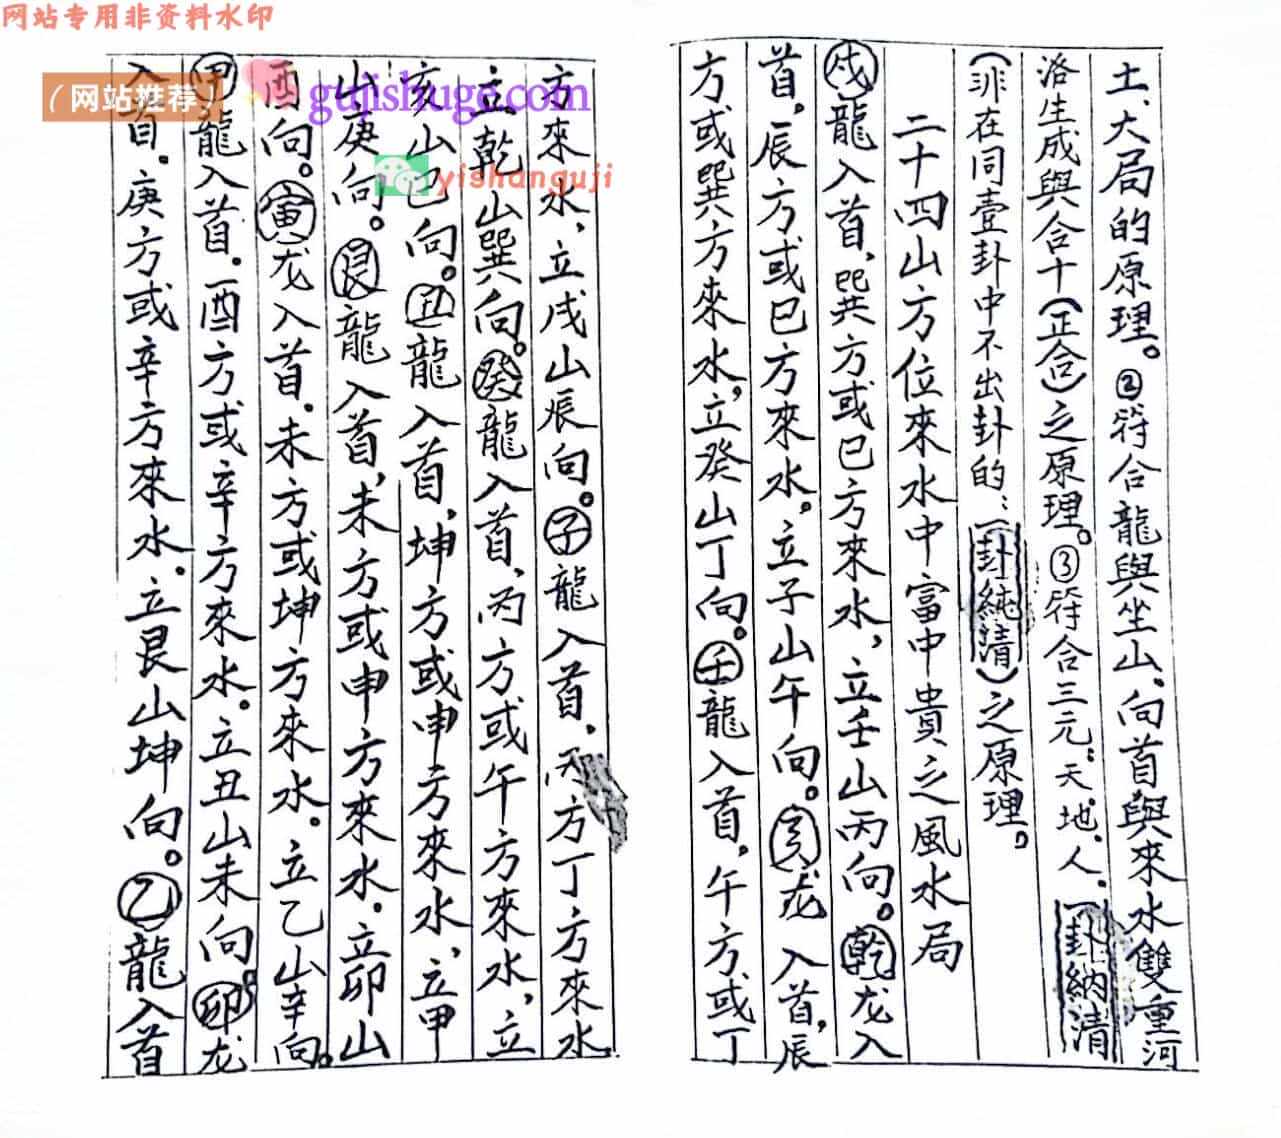 网站专用非资料水印
（网站推荐）
gujishuge.com
yishanguji
土、大局的原理。②符合龍與坐山、向首與來水雙重河
洛生成與合十（正合）之原理。③符合三元：天、地、人、一卦納清
（非在同壹卦中不出卦的：一卦純清）之原理。
二十四山方位來水中富中貴之風水局
戌龍入首，巽方或巳方來水，立壬山丙向。乾龙入
首。辰方或巳方來水。立子山午向。亥龙入首，辰
方或巽方來水，立癸山丁向。壬龍入首，午方或丁
方來水，立戌山辰向。子龍入首，丙方丁方來水
立乾山巽向。癸龍入首，丙方或午方來水，立
亥山巳向。丑龍入首，坤方或申方來水，立甲
山庚向。艮龍入首，未方或申方來水，立卯山
酉向。寅龙入首，未方或坤方來水。立乙山辛向。
甲龍入首。酉方或辛方來水。立丑山未向。卯龙
入首。庚方或辛方來水。立艮山坤向。乙龍入首